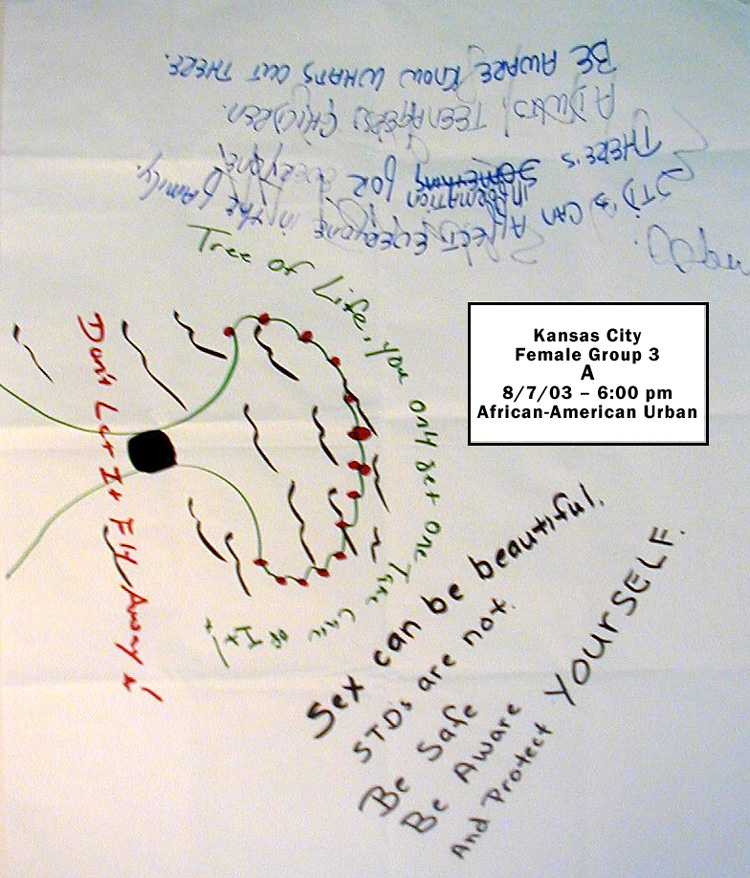 STD's CAN AffECT EVERYONE in the family.
THERE'S SOMETHING INformation for everyone,
ADULTS, TEENAGERS, CHILDREN.
BE AWARE KNOW WHATS OUT THERE.
Tree of Life, you only get one Take Care of It!
Don't Let It Fly Away!
Kansas City
Female Group 3
A
8/7/03 – 6:00 pm
African-American Urban
Sex can be beautiful.
STD's are not.
Be Safe
Be Aware
And Protect YOURSELF.